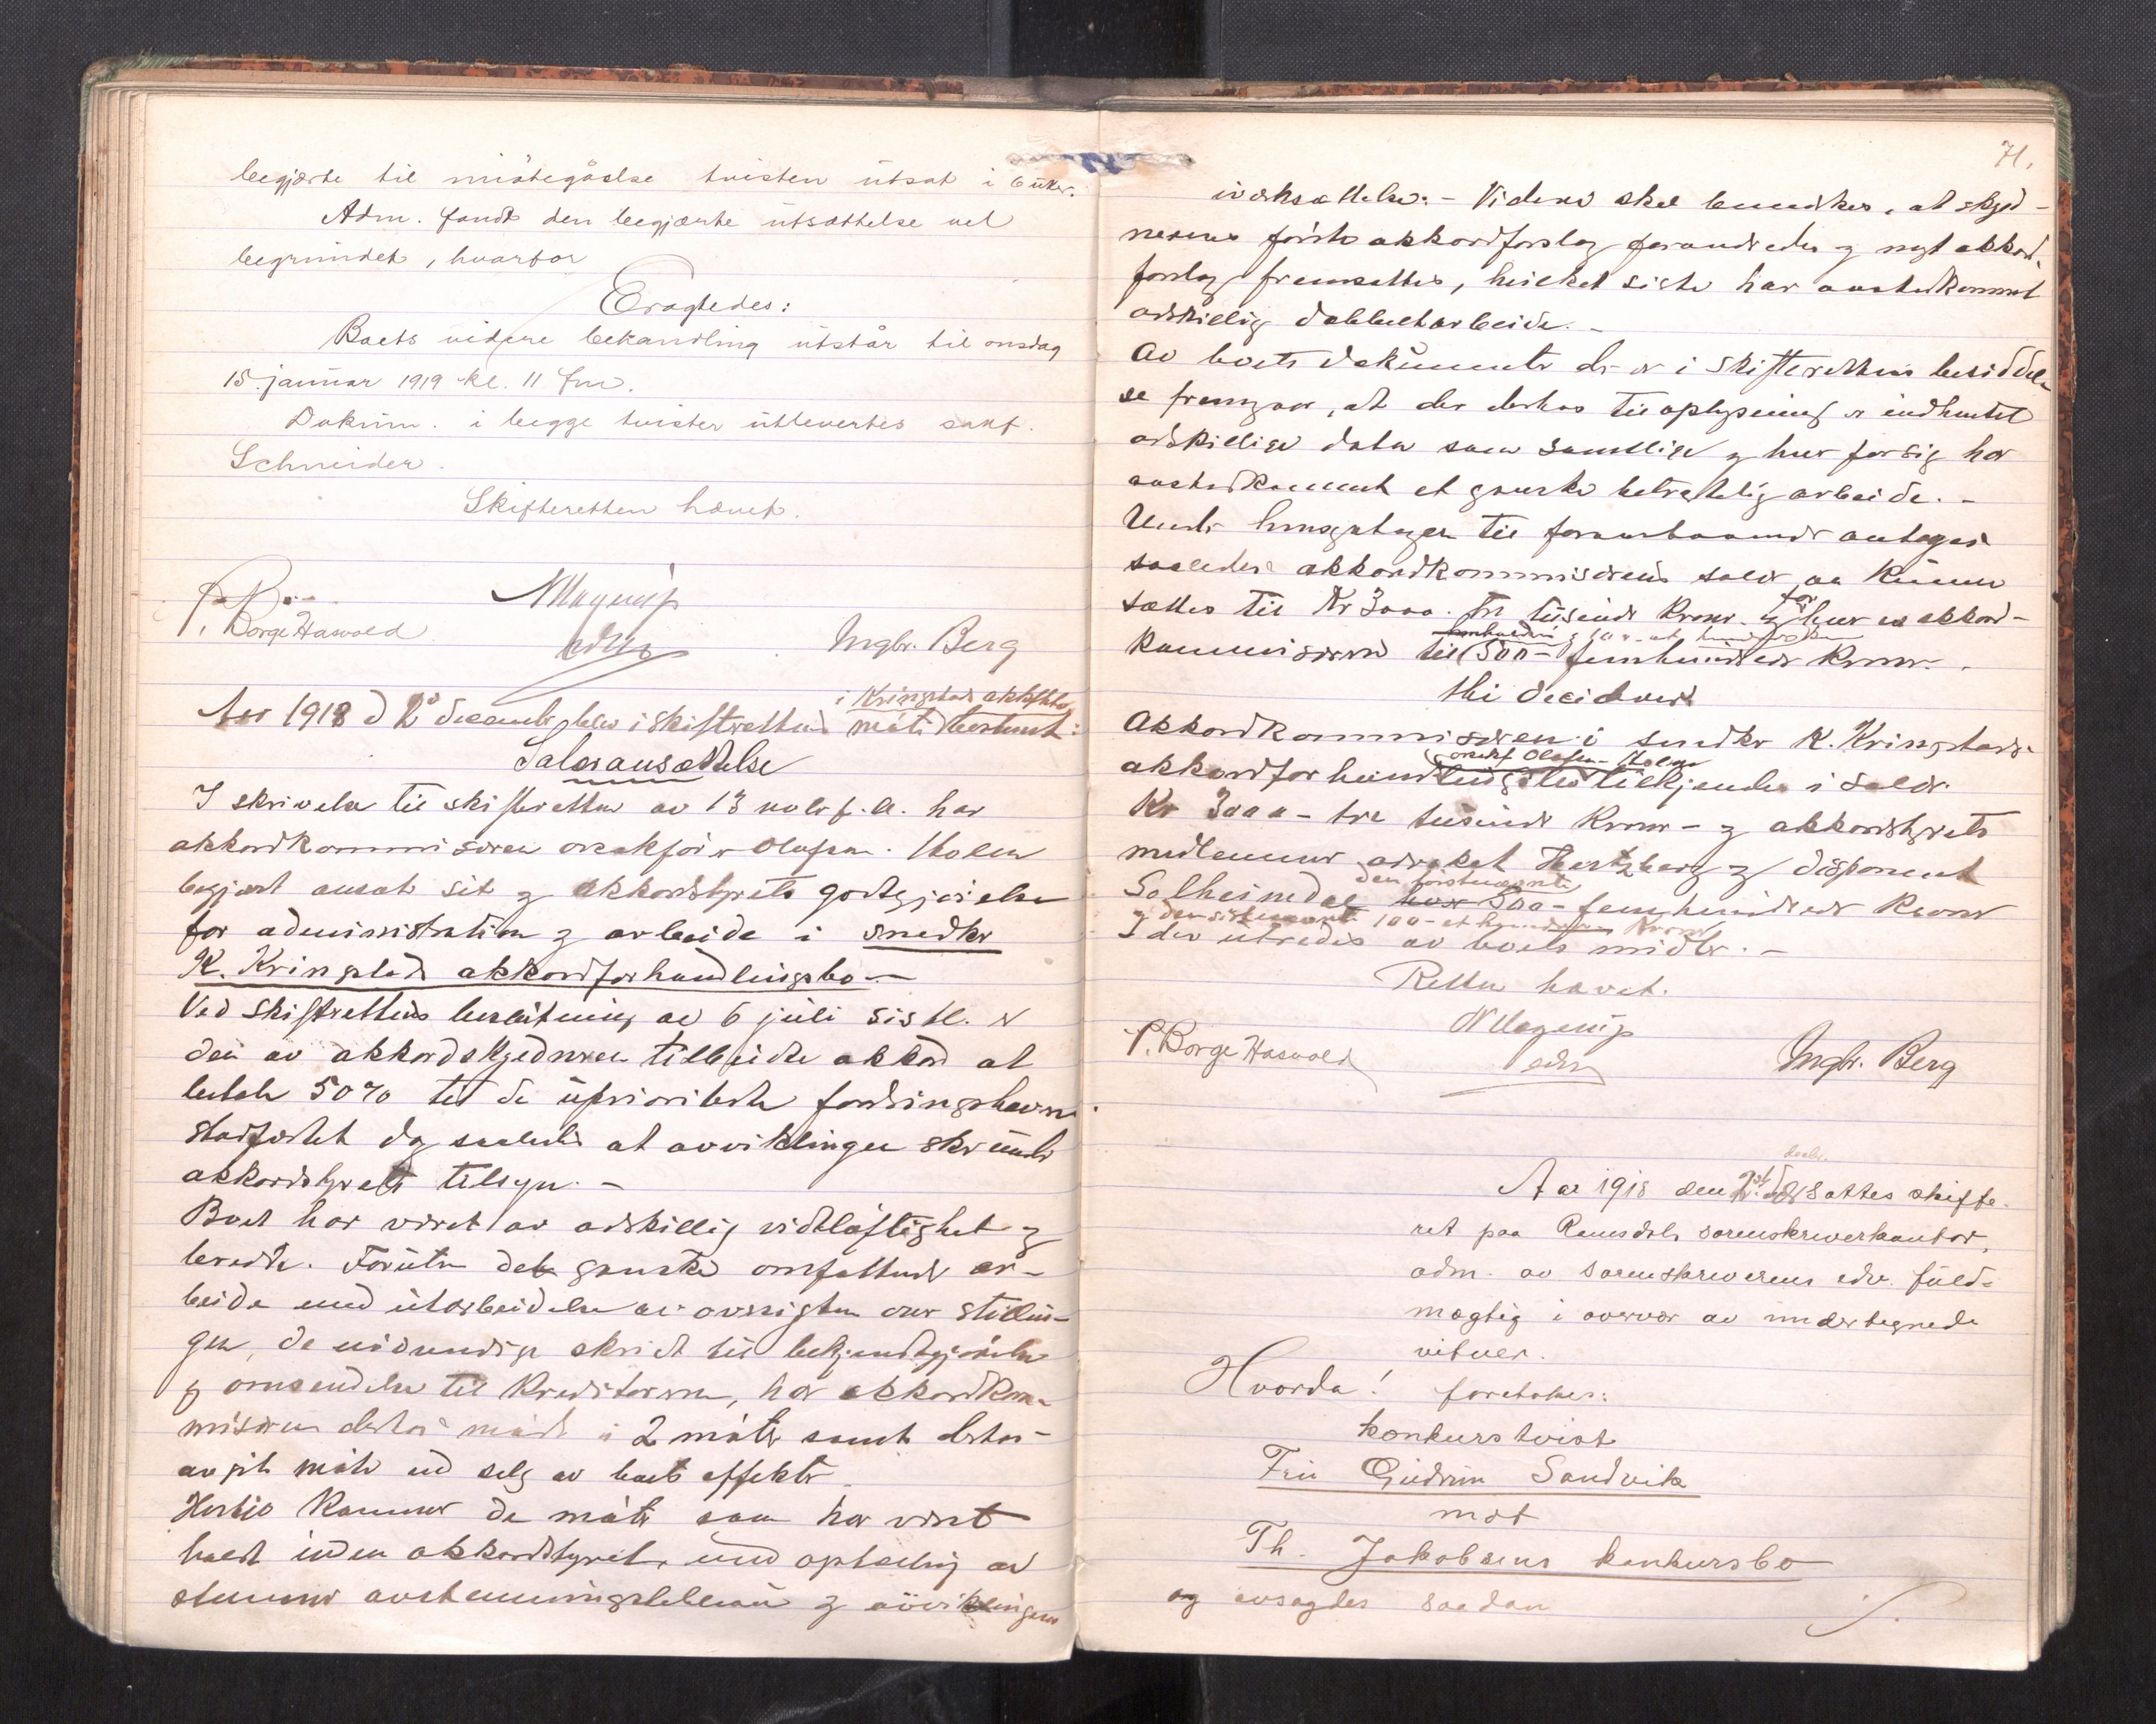 begjærte til imøtegåelse tvisten utsat i 6 uker.
Adm. fandt den begjærte utsættelse vel
begrundet, hvorfor
Eragtedes:
Boets videre behandling utstår til onsdag
15. januar 1919 kl. 11 fm.
Dokum. i begge tvister utlevertes sakf.
Schneider.
Skifteretten hævet.
P. Borge Hasvold
edv
Ingbr. Berg
Aar 1918 d 2 december blev i skifteretten i Kringstads akkfhbo møte bestemt:
Salæransættelse
I skrivelse til skifteretten av 13 novbr f. a. har
akkordkommissæren oreakfører Olafsen-Holm
begjært ansat sit og akkordstyrets godtgjørelse
for administration og arbeide i snedker
K. Kringstads akkordforhandlingsbo. -
Ved skifterettens beslutning av 6 juli sistl. er
den av akkordskyldneren tilbudte akkord at
betale 50% til de upriorierte fordringshavere
stadfæstet dog saaledes at avviklingen sker under
akkordstyrets tilsyn. -
Boet har været av adskillig vidtløftighet og
bredde. Foruten det ganske omfattende ar-
beide med utarbeidelse av oversigten over stillin-
gen, de nødvendige skridt til bekjendtgjørelse
og omsendelse til kreditorerne, har akkordkom-
missæren derhos møtt i 2 møter samt derhos
avgit møte ved salg av boets effekter.
Hertil kommer de møter som har været
holdt inden akkordstyret, med optælling av
stemmer avstemningstillæm og avviklingens
71.
iverksættelse. - Videre skal bemerkes, at skyld-
nerens første akkordforslag forandredes og nyt akkord-
forslag fremsattes, hvilket siste har avstedkommet
adskillig dobbeltarbeide. -
Av boets dokumenter der er i skifterettens besiddel-
se fremgaar, at der derhos til oplysning er indhentet
adskillige data som samtlige og hver for sig har
avstedkommet et ganske betragtelig arbeide. -
Under hensyntagen til foranstaaende antages
saaledes akkordkommissærens salær at kunne
sættes til Kr 3000. tre tusinde kroner og for hver av akkord-
kommissærerne til 500 - femhundrede kroner.
thi decideres
Akkordkommissæren i snedker K. Kringstads
akkordforhandlingsbo oreakf Olafsen-Holm tilkjendes i salær
Kr 3000 - tre tusinde kroner - og akkordstyrets
medlemmer advokat Hertzberg og disponent
Solheimdal den førstnævnte 500 - femhundrede kroner
og den sistnævnte 100 - et hundrede kroner
der utredes av boets midler. -
Retten hævet.
P. Borge Hasvold
edv
Ingbr. Berg
Aar 1918 den 2 decbr. sattes skifte-
ret paa Romsdals sorenskriverkontor,
adm. av sorenskriverens edv. fuld-
mægtig i overvær av undertegnede
vitner.
Hvorda! foretokes:
konkurstvist
Fru Gudrun Sandvik
mot
Th. Jakobsens konkursbo
og avsagdes saadan